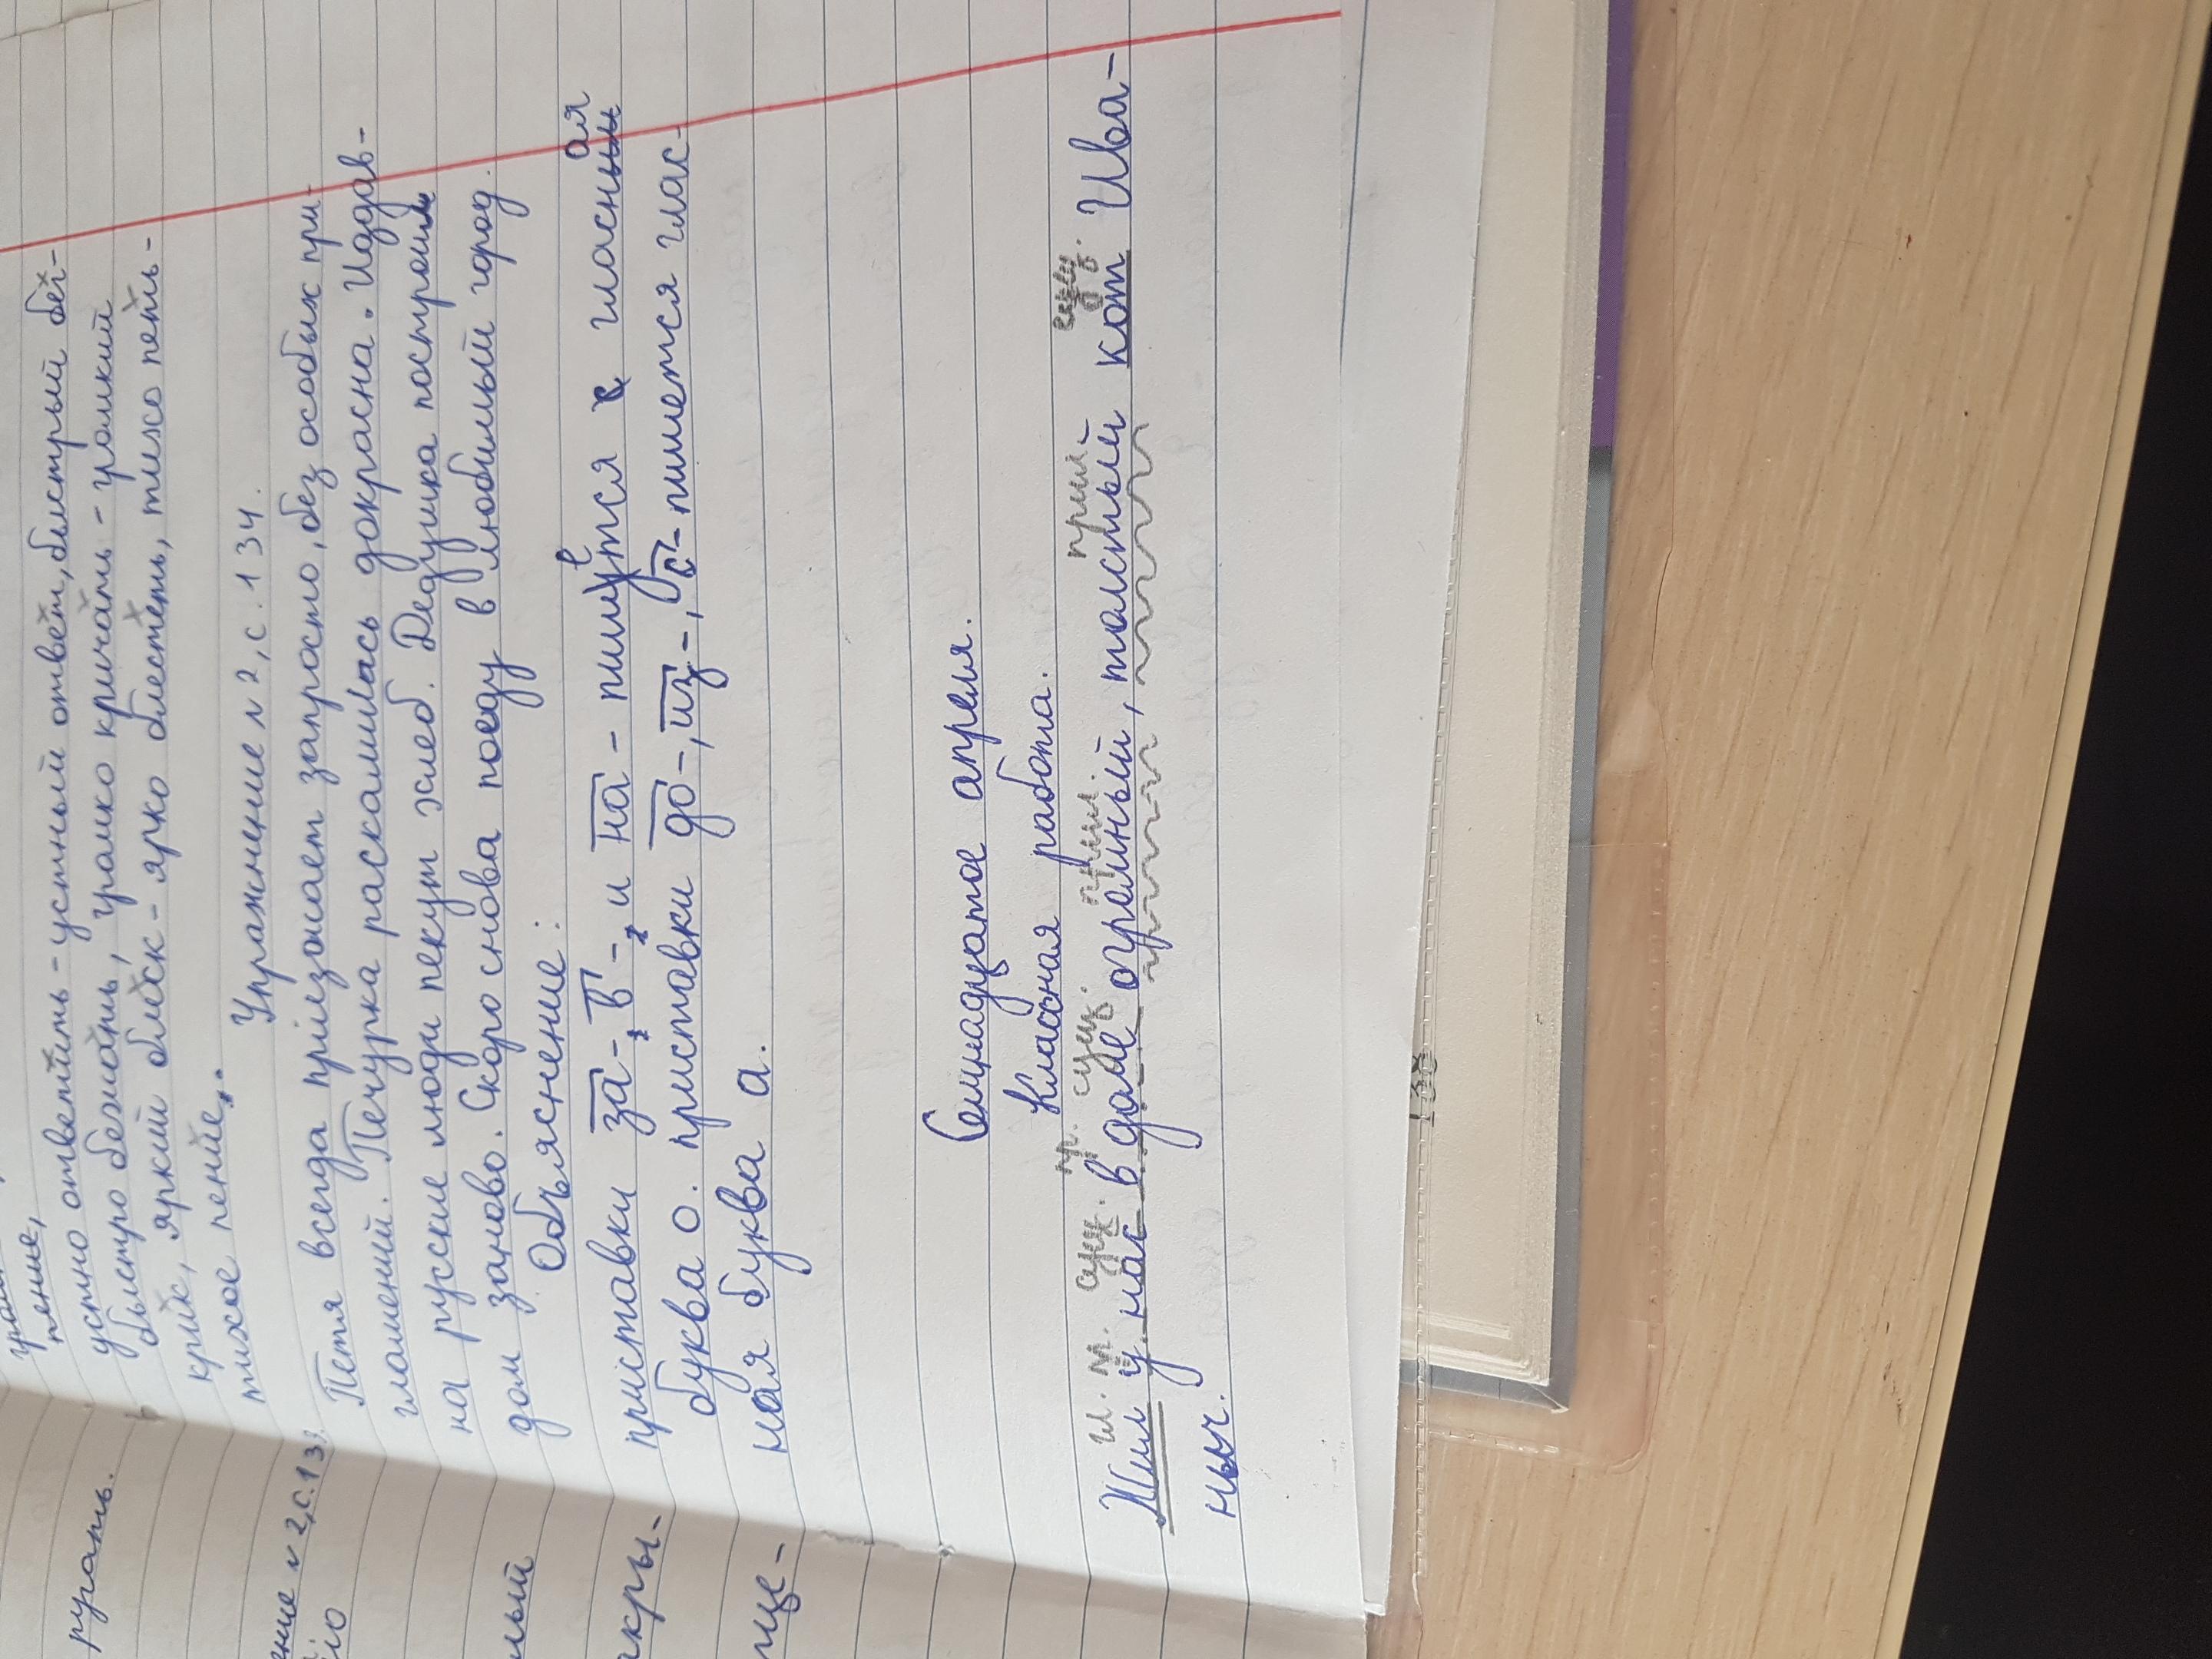 пение,
устно ответить - устный ответ, быстрый бег-
быстро бежать, громко кричать - громкий
крик, яркий блеск - ярко блестеть, тихо петь -
тихое пение.
Упражнение № 2, с. 134.
Петя всегда приезжает запросто, без особых при-
глашений. Печурка раскалилась докрасна. Издав-
на русские люди пекут хлеб. Дедушка построил
дом заново. Скоро снова поеду в любимый город.
Объяснение:
приставки за-, в-, и на- пишется гласная
буква о. приставки до-, из-, с- пишется глас-
ная буква а.
Семнадцатое апреля.
Классная работа.
гл. м. сущ. п. сущ. прил. прил. сущ.
Жил у нас в доме огромный, толстый кот Ива-
ныч.
ругать.
ение № 2, с. 133.
лый
акры-
ще-
138